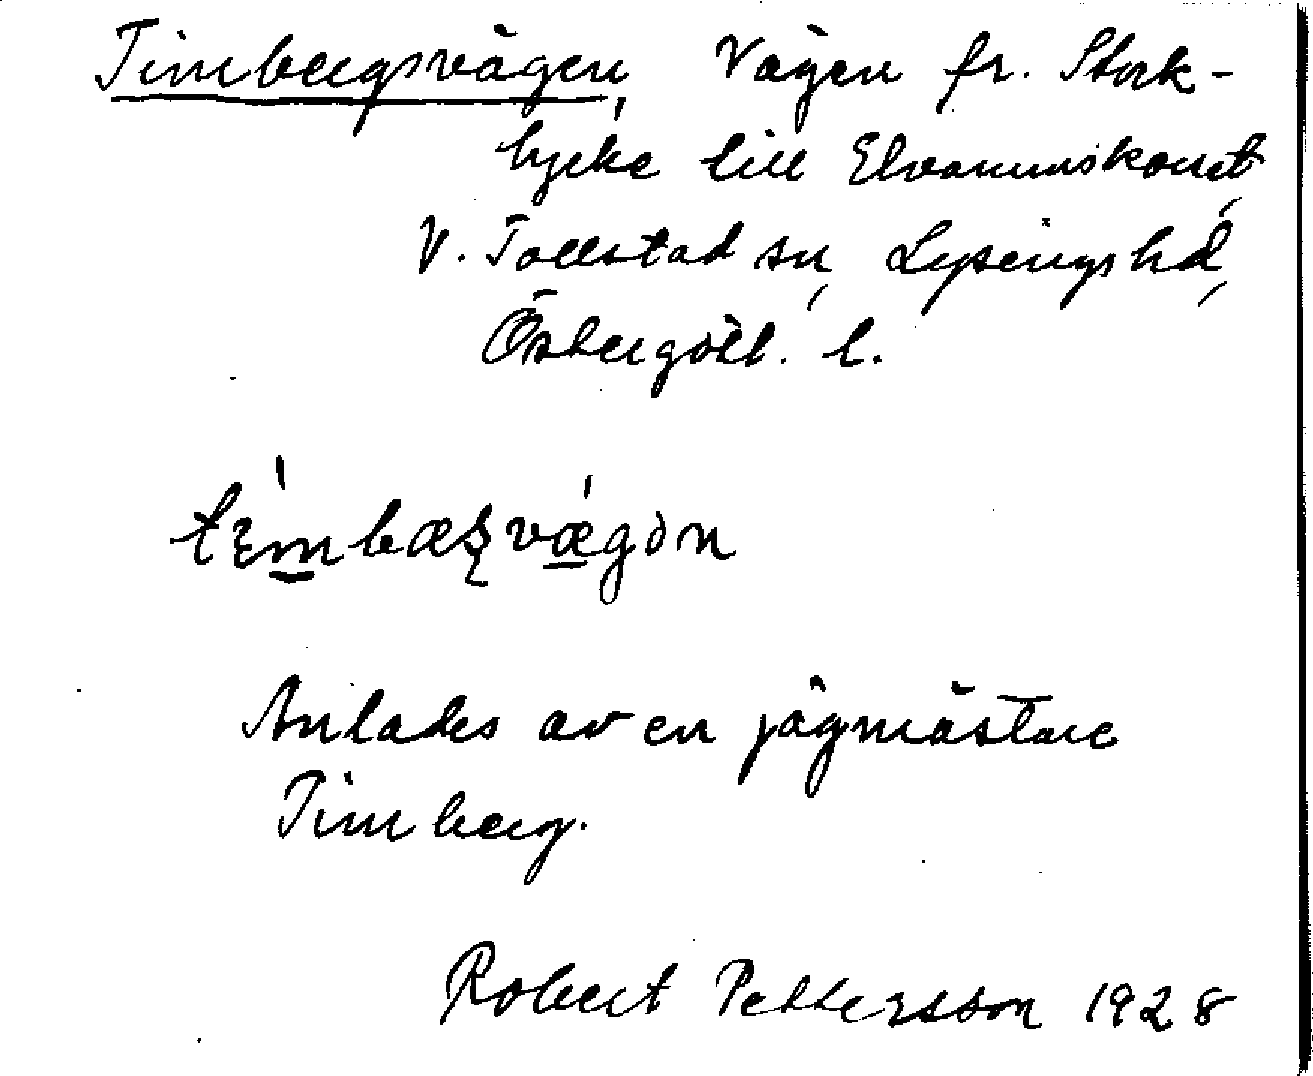 Timbergsvägen, Vägen fr. Stork-
lycke till Elvarumskorset,
V. Tollstad sn, Lysings hd,
Östergötl. l.
Anlades av en jägmästare
Timberg.
Robert Pettersson 1928